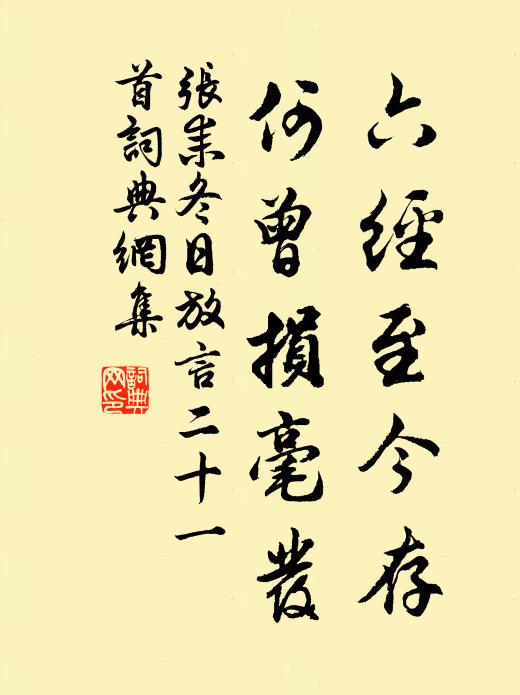 六經至今存
何曾損毫發
張耒冬日放言二十一
首詞典網集
詞典
网印